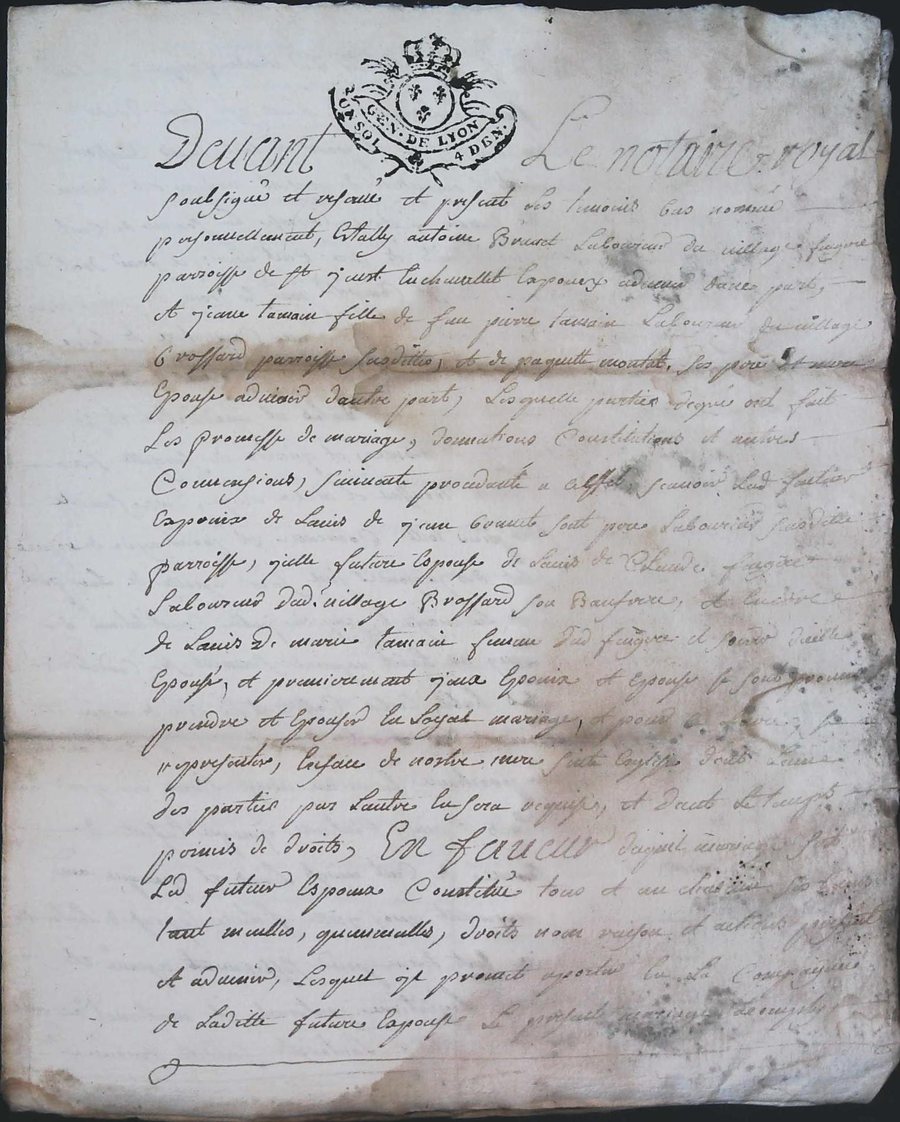 GEN. DE LYON
UN SOL 4 DEN.
Devant Le notaire royal
soubsigné et reservé et present les temoins bas nommé
personnellement, Estably antoine Brunet Laboureur du village fugere
parroisse de st just Enchevellet Espoux advenir dune part,
et jeane tamain fille de feu pierre tamain Laboureur du village
Brossard parroisse susditte, et de paquette ses pere et mere
Epouse advenir dautre part, Lesquelle parties degré ont fait
Les promesse de mariage, donnations Constitutions et autres
Convensions, suivante procedante a Leffet scavoir Led futeur
Espoux de Lavis de jean son pere Laboureur susditte
parroisse, jcelle future Espouse de Lavis de Claude fugere
Laboureur dud. village Brossard son Baufrere, et Encore
de Lavis de marie tamain femme dud fugere et soeur dicelle
Epouse, et premierement jceux Epoux et Epouse se sont promis
prendre et Epouser En Loyal mariage, et pour ce faire se
representer, Enface de nostre mere sinte Eglise dont Lune
des parties par Lautre En sera requise, et dans Le temps
permis de droits, En faveur duquel mariage
Led futeur Espoux Constitué tous et un chacuns ses biens
tant meubles, qu'immeubles, droits nom raison et actions present
et advenir, Lesquel jl promet aporter En La Compagnie
de Laditte future Espouse Le present mariage